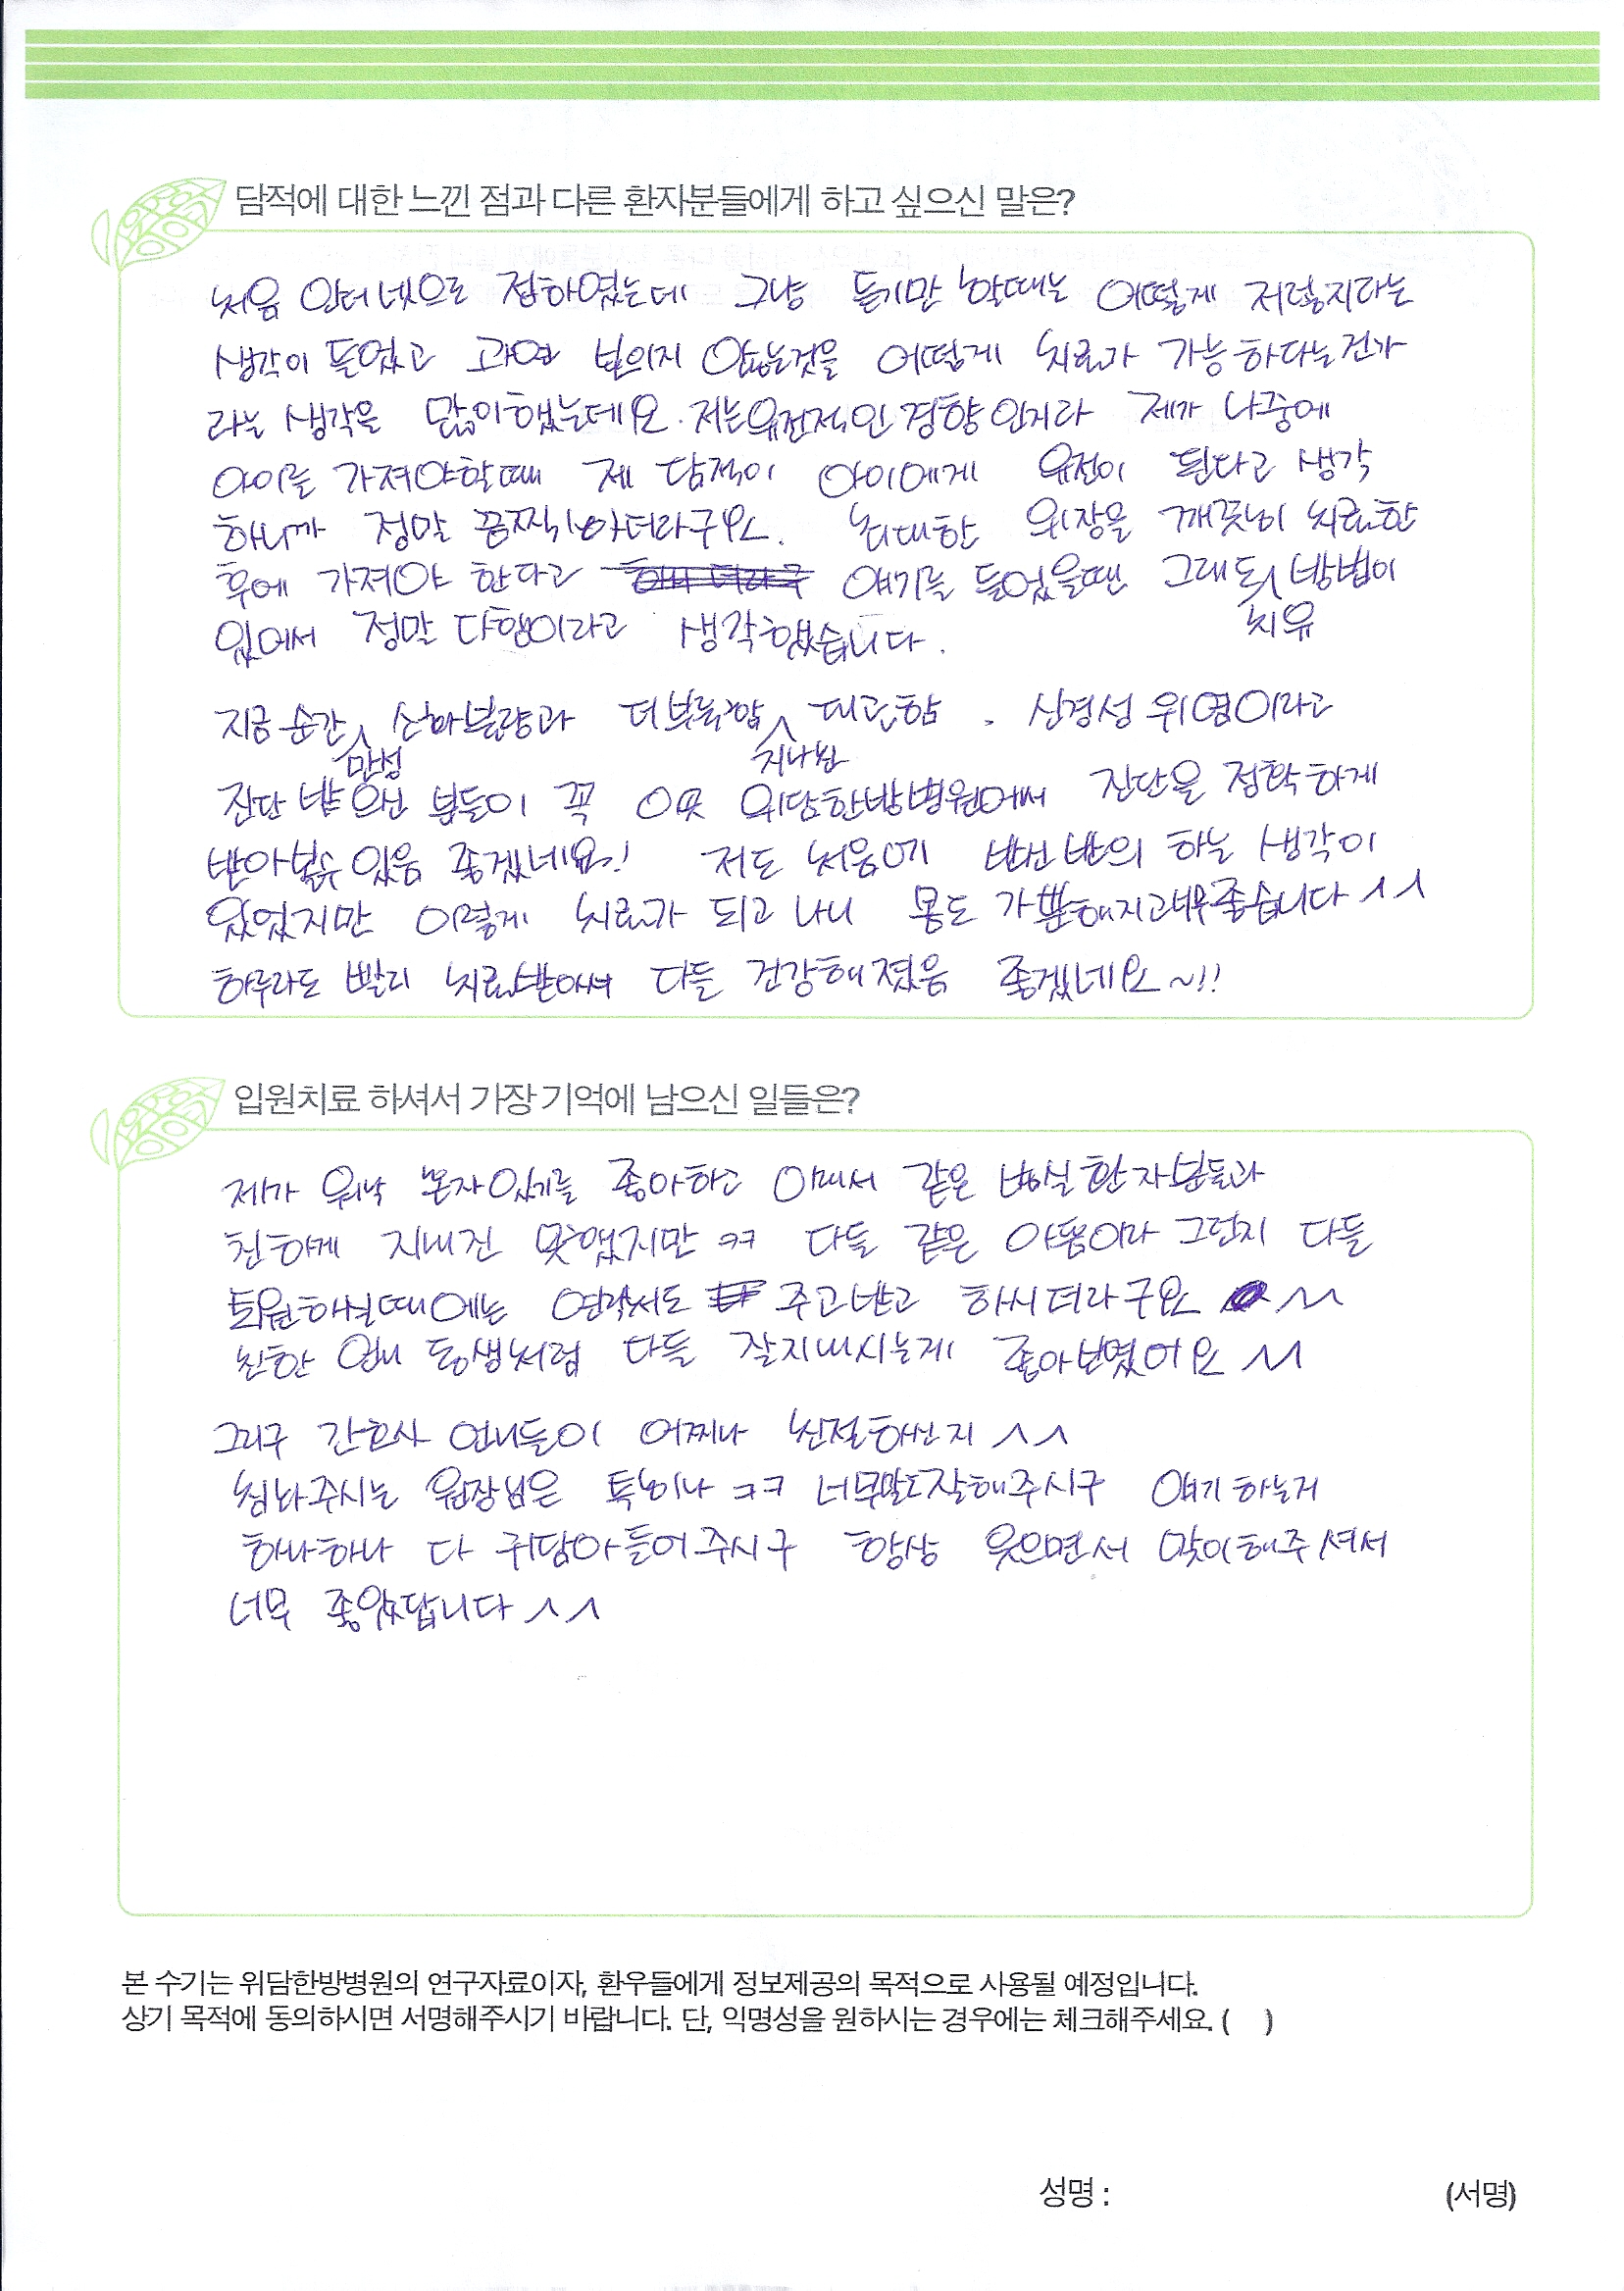 담적에 대한 느낀 점과 다른 환자분들에게 하고 싶으신 말은?
처음 인터넷으로 접하였는데 그냥 듣기만 할때는 어떻게 저럴지라는
생각이 들었고 과연 보이지 않는것을 어떻게 치료가 가능하다는건가
라는 생각을 많이했는데요. 저는유전적인 경향인지라 제가 나중에
아이를 가져야할때 제 담적이 아이에게 유전이 된다고 생각
하니까 정말 끔찍하더라구요. 최대한 위장을 깨끗이 치료한
후에 가져야 한다고 얘기를 들었을땐 그래도 치유 방법이
있어서 정말 다행이라고 생각했습니다.
지금 순간 만성 소화불량과 더부룩함 지나친 예민함. 신경성 위염이라고
진단 받으신 분들이 꼭 이곳 위담한방병원에서 진단을 정확하게
받아볼수 있음 좋겠네요~! 저도 처음에 반신반의 하는 생각이
있었지만 이렇게 치료가 되고 나니 몸도 가뿐해지고너무좋습니다 ^^
하루라도 빨리 치료받아서 다들 건강해졌음 좋겠네요~!!
입원치료 하셔서 가장 기억에 남으신 일들은?
제가 워낙 혼자있기를 좋아하고 해서 같은 병실 환자분들과
친하게 지내진 못했지만 ㅋㅋ 다들 같은 아픔이라 그런지 다들
퇴원하실때에는 연락처도 주고받고 하시더라구요 ^^
친한 언니 동생처럼 다들 잘지내시는게 좋아보였어요 ^^
그리구 간호사 언니들이 어찌나 친절하신지 ^^
침놔주시는 원장님은 특히나 ㅋㅋ 너무말도잘해주시구 얘기하는거
하나하나 다 귀담아 들어주시구 항상 웃으면서 맞이해주셔서
너무 좋았답니다 ^^
본 수기는 위담한방병원의 연구자료이자, 환우들에게 정보제공의 목적으로 사용될 예정입니다.
상기 목적에 동의하시면 서명해주시기 바랍니다. 단, 익명성을 원하시는 경우에는 체크해주세요. (    )
성명 : (서명)